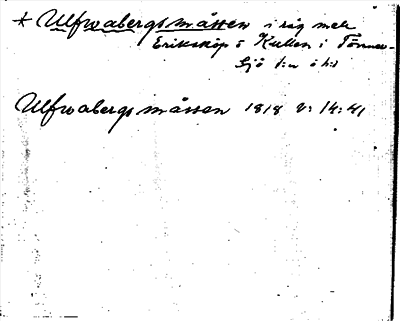 * Ulfwabergsmåssen i råg med
Eriksköp o Kullen i Tönner-
sjö s:n o hd
Ulfwabergsmåssen 1818 v: 14:41